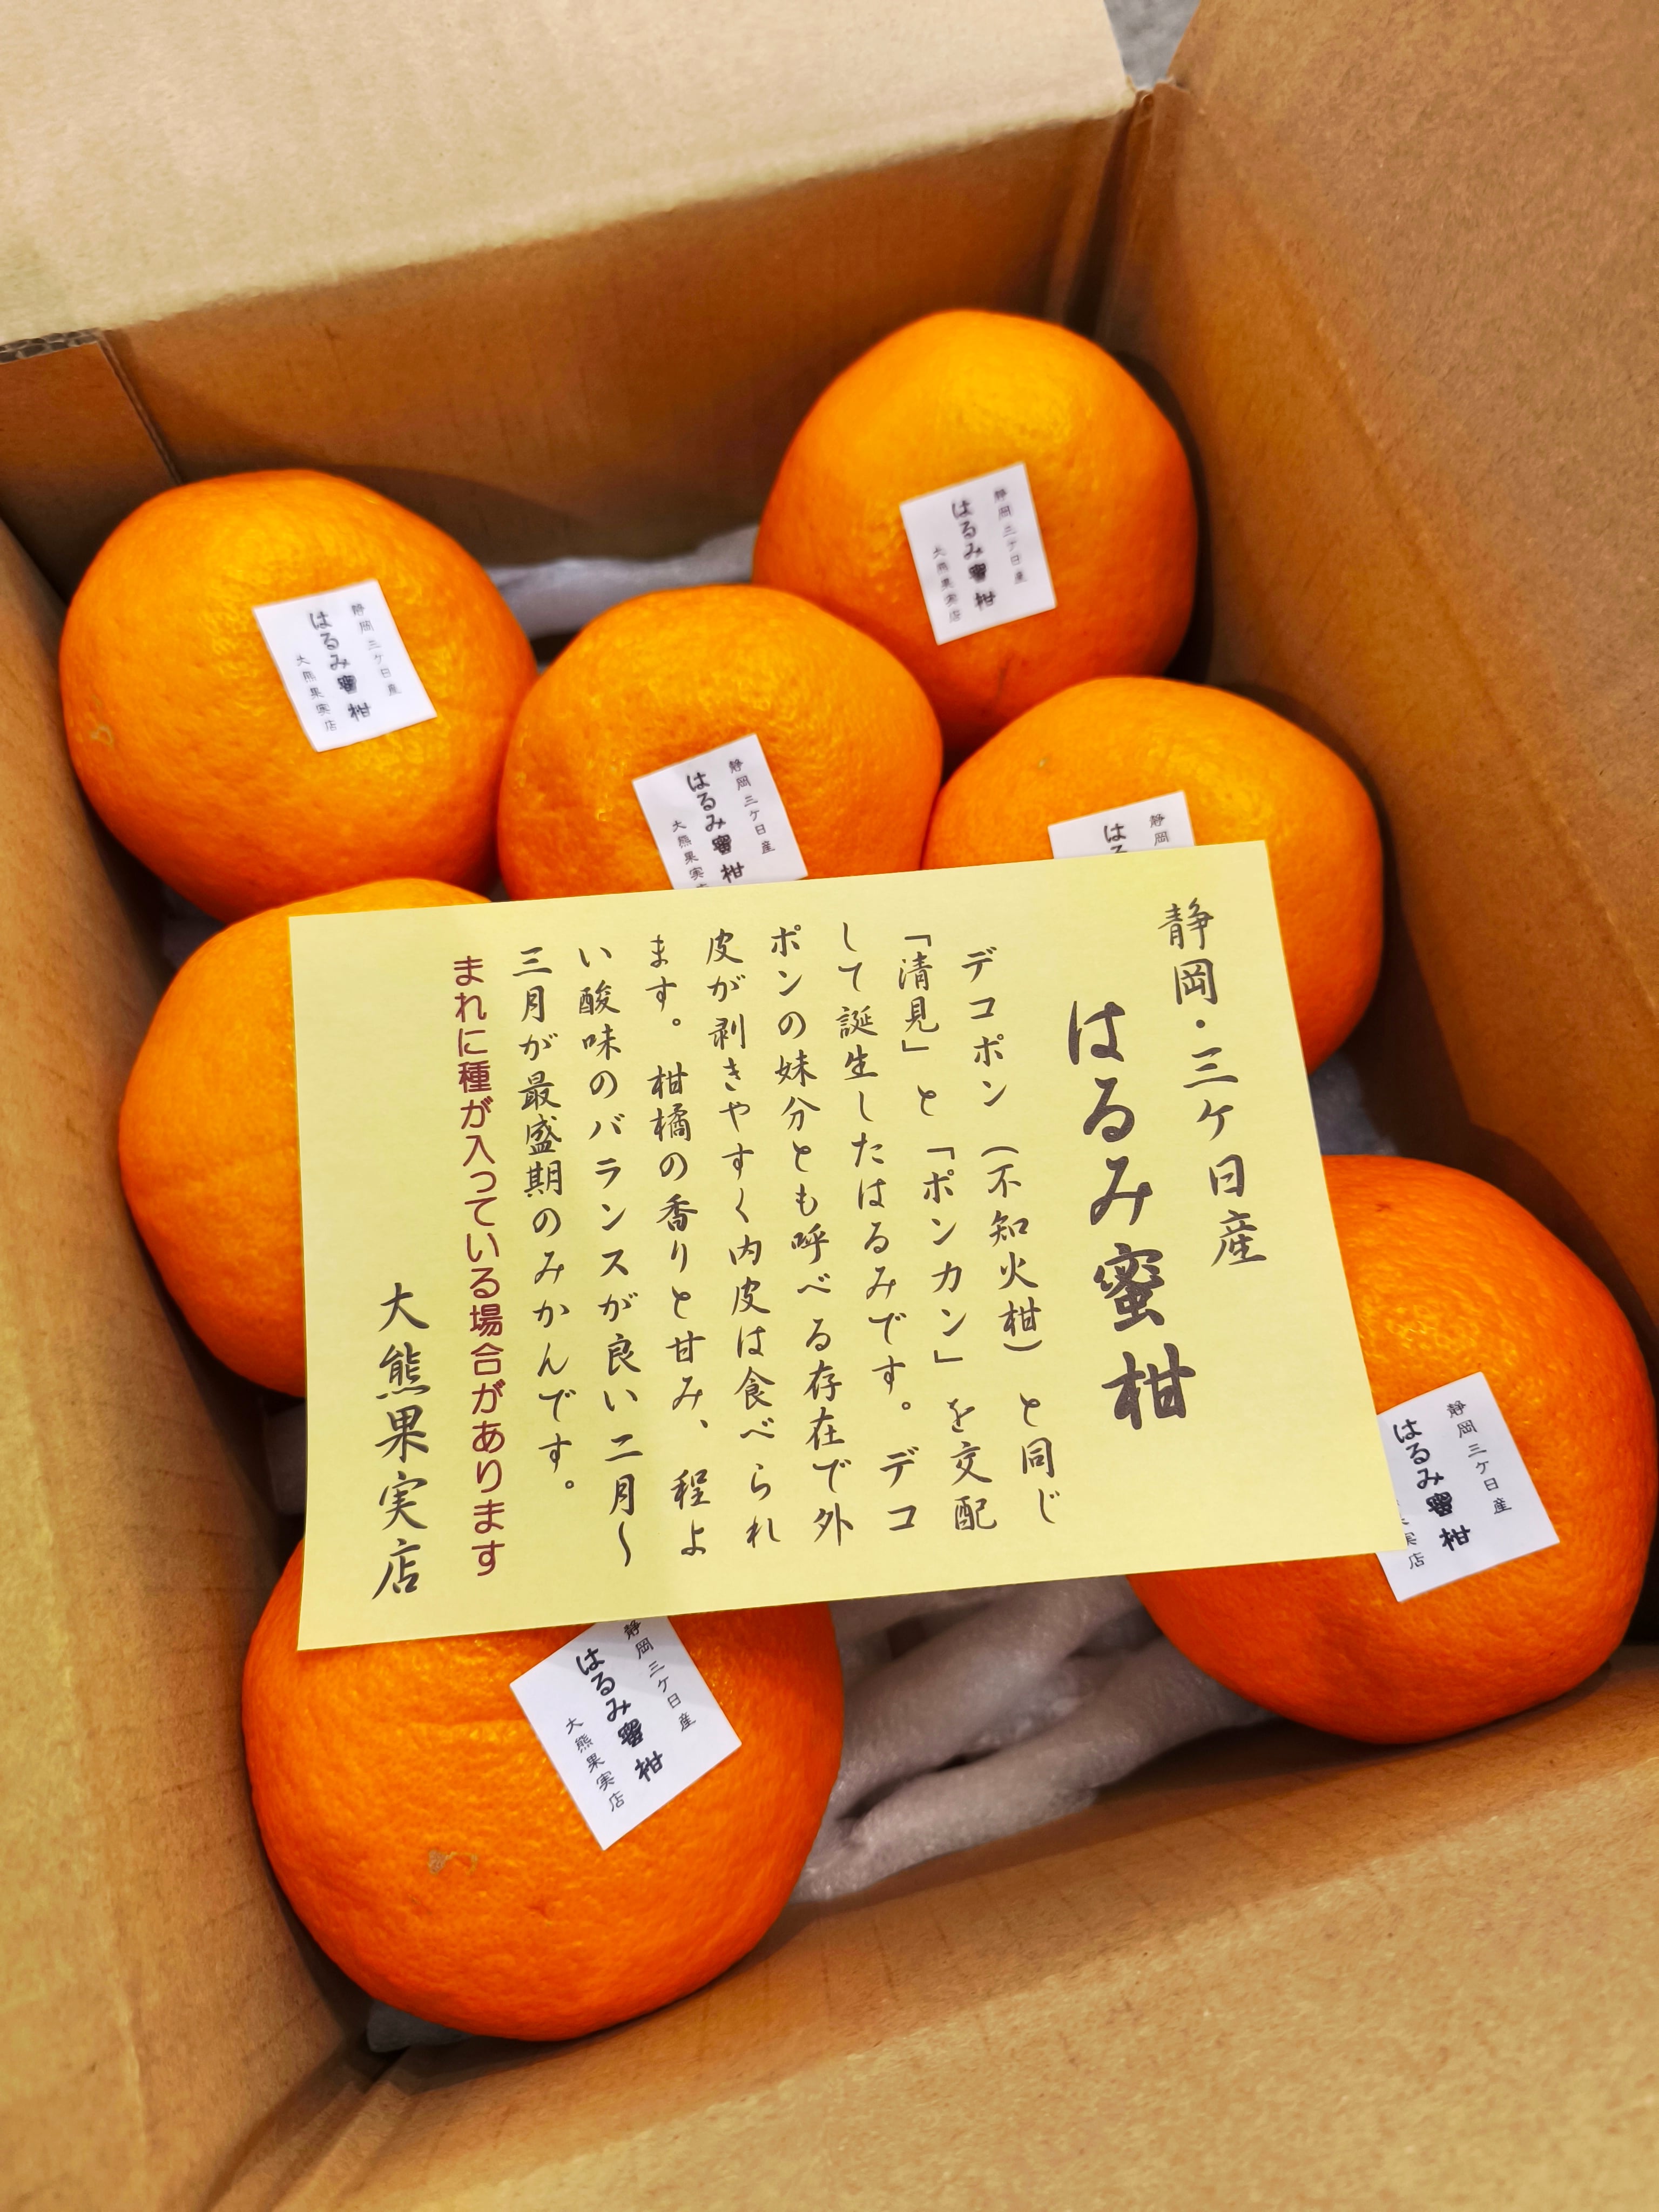 静岡三ケ日産
はるみ蜜柑
大熊果実店
静岡三ケ日産
はるみ蜜柑
大熊果実店
静岡三ケ日産
はるみ蜜柑
大熊果実
静岡
は
静岡・三ケ日産
はるみ蜜柑
デコポン(不知火柑)と同じ
「清見」と「ポンカン」を交配
して誕生したはるみです。デコ
ポンの妹分とも呼べる存在で外
皮が剥きやすく内皮は食べられ
ます。柑橘の香りと甘み、程よ
い酸味のバランスが良い二月〜
三月が最盛期のみかんです。
まれに種が入っている場合があります
大熊果実店
静岡三ケ日産
はるみ蜜柑
実店
静岡三ケ日産
はるみ蜜柑
大熊果実店